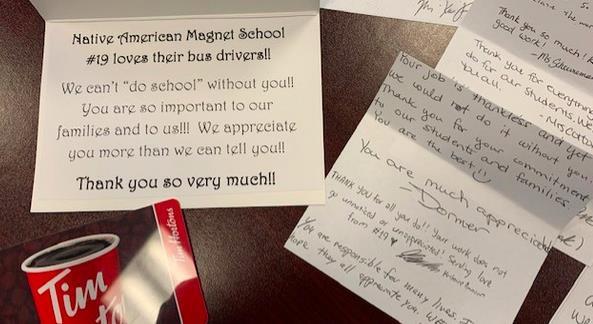 Native American Magnet School
#19 loves their bus drivers!!
We can't "do school" without you!!
You are so important to our
families and to us!!! We appreciate
you more than we can tell you!!
Thank you so very much!!
Tim
Tim Hortons
Thank you so much!
good work!
Thank you for everything
do for our students. We
you all.
Your job is thankless and yet
we would not do it without you.
Thank you for your commitment
to our students and families.
You are the best!!
You are much appreciated
Dormer
THANK YOU for all you do!! Your work does not
go unnoticed or unappreciated! Sending love
from #19 ♥
You are responsible for many lives. I
hope they all appreciate you.